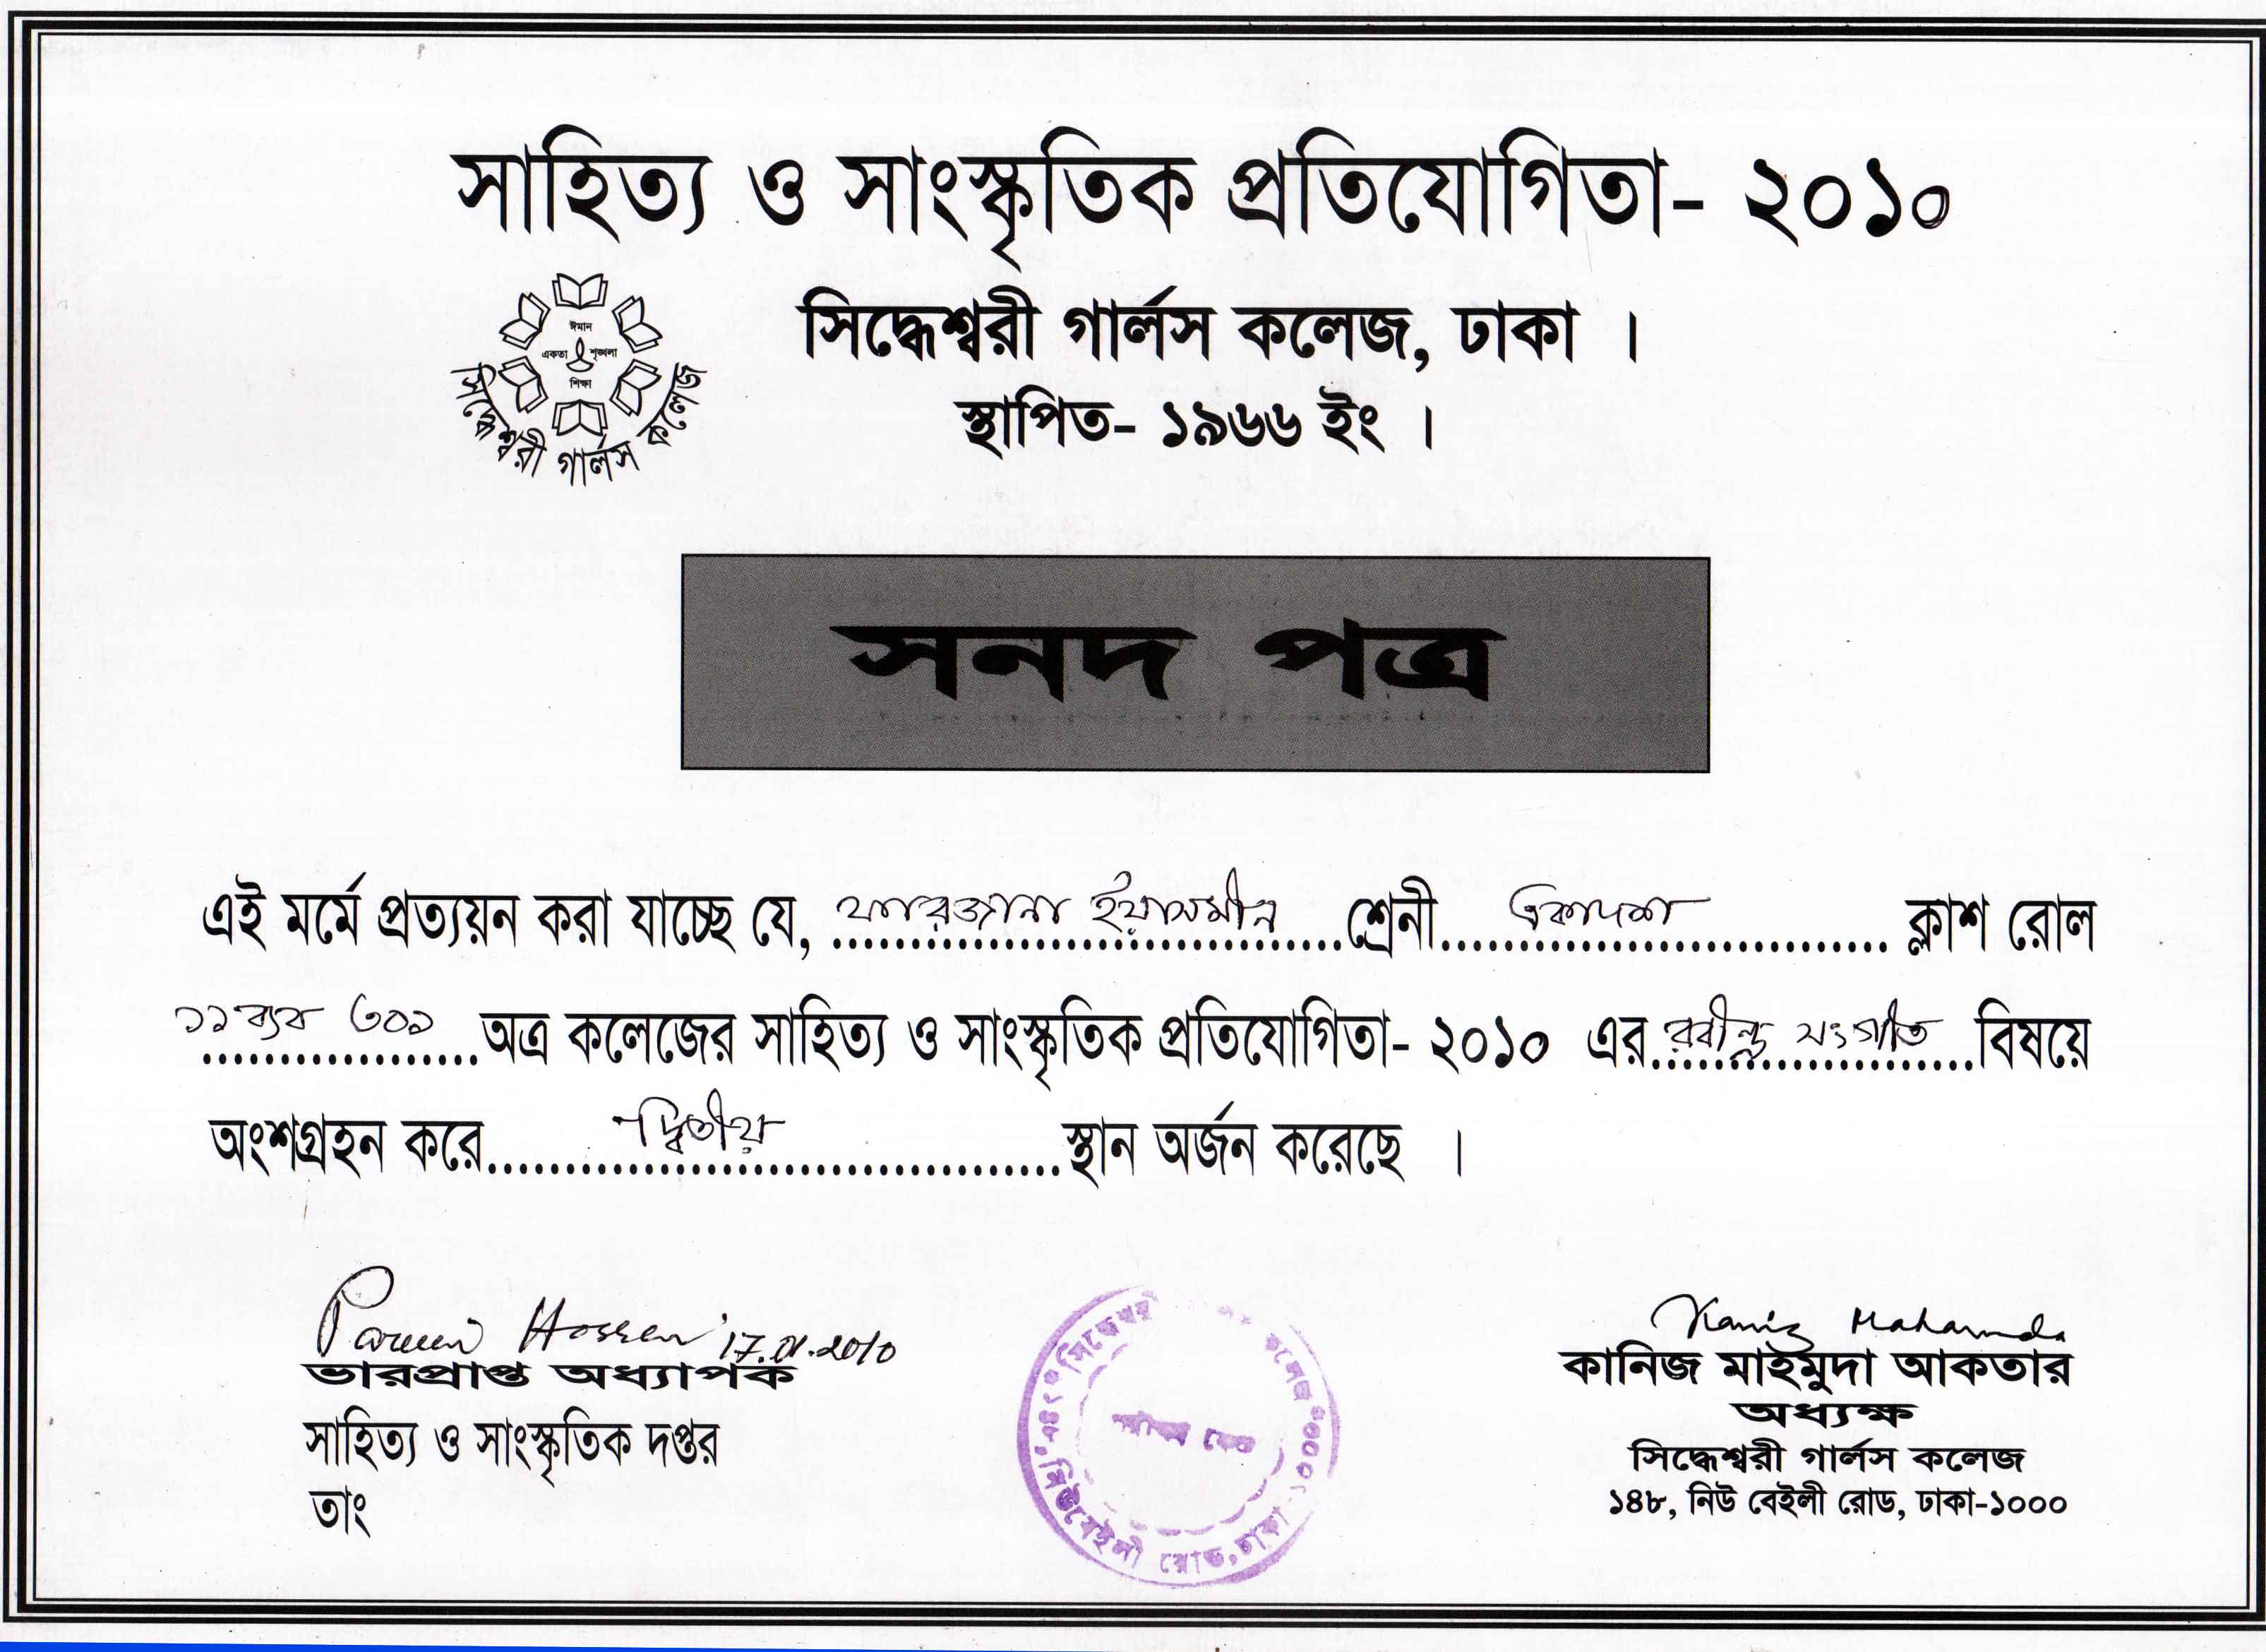 সাহিত্য ও সাংস্কৃতিক প্রতিযোগিতা- ২০১০
সিদ্ধেশ্বরী গার্লস কলেজ, ঢাকা ।
স্থাপিত- ১৯৬৬ ইং ।
ঈমান
একতা শৃঙ্খলা
শিক্ষা
সিদ্ধেশ্বরী গার্লস কলেজ
সনদ পত্র
এই মর্মে প্রত্যয়ন করা যাচ্ছে যে, ফারজানা ইয়াসমীন শ্রেনী একাদশ ক্লাশ রোল
১১ব্যব ৩০৯ অত্র কলেজের সাহিত্য ও সাংস্কৃতিক প্রতিযোগিতা- ২০১০ এর রবীন্দ্র সংগীত বিষয়ে
অংশগ্রহন করে দ্বিতীয় স্থান অর্জন করেছে ।
Parveen Hossen 17.01.2010
ভারপ্রাপ্ত অধ্যাপক
সাহিত্য ও সাংস্কৃতিক দপ্তর
তাং
সিদ্ধেশ্বরী কলেজ
নিউবেইলী রোড, ঢাকা-১০০০
Kaniz Mahamuda
কানিজ মাইমুদা আকতার
অধ্যক্ষ
সিদ্ধেশ্বরী গার্লস কলেজ
১৪৮, নিউ বেইলী রোড, ঢাকা-১০০০